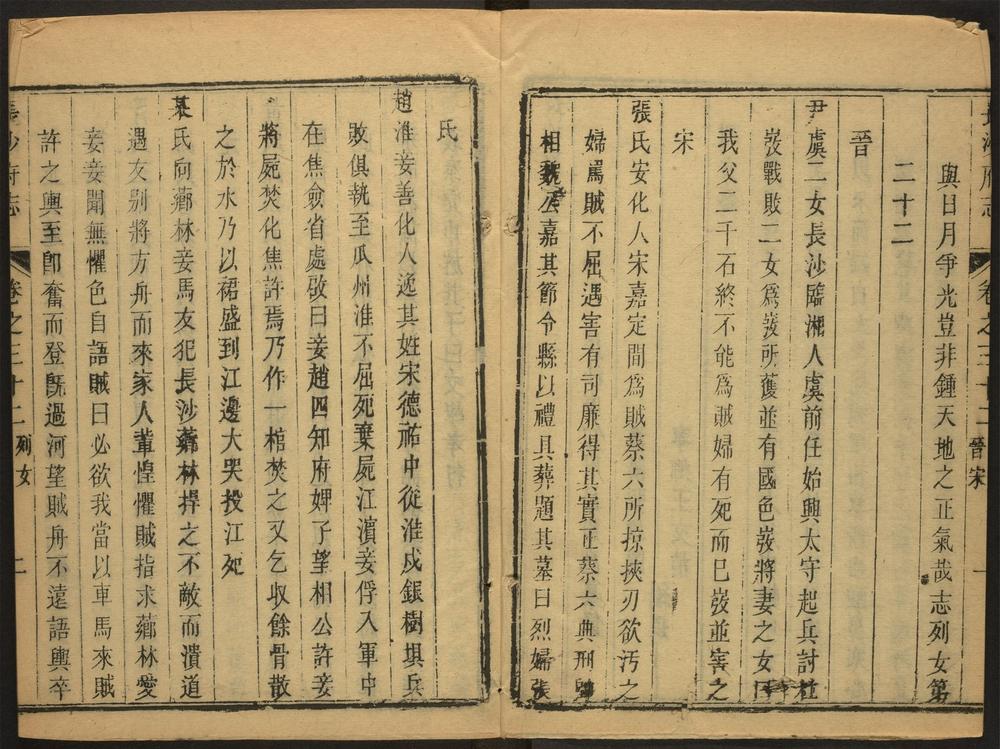 長沙府志 卷之三十二 晉宋 一
與日月爭光豈非鍾天地之正氣哉志列女第
二十二
晉
尹虞二女長沙臨湘人虞前任始興太守起兵討杜
弢戰敗二女爲弢所獲並有國色弢將妻之女曰
我父二千石終不能爲賊婦有死而已弢並害之
宋
張氏安化人宋嘉定間爲賊蔡六所掠挾刃欲汚之
婦罵賊不屈遇害有司廉得其實正蔡六典刑
相魏公嘉其節令縣以禮具葬題其墓曰烈婦張
氏
趙淮妾善化人逸其姓宋德祐中從淮戍銀樹埧兵
敗俱執至瓜州淮不屈死棄屍江濵妾俘入軍中
在焦僉省處敂曰妾趙四知府婢子望相公許妾
將屍焚化焦許焉乃作一棺焚之又乞収餘骨散
之於水乃以裙盛到江邊大哭投江死
某氏向薌林妾馬友犯長沙薌林捍之不敵而潰道
遇友别將方舟而來家人輩惶懼賊指求薌林愛
妾妾聞無懼色自語賊曰必欲我當以車馬來賊
許之輿至卽奮而登旣過河望賊舟不遠語輿卒
長沙府志 卷之三十二 列女 二